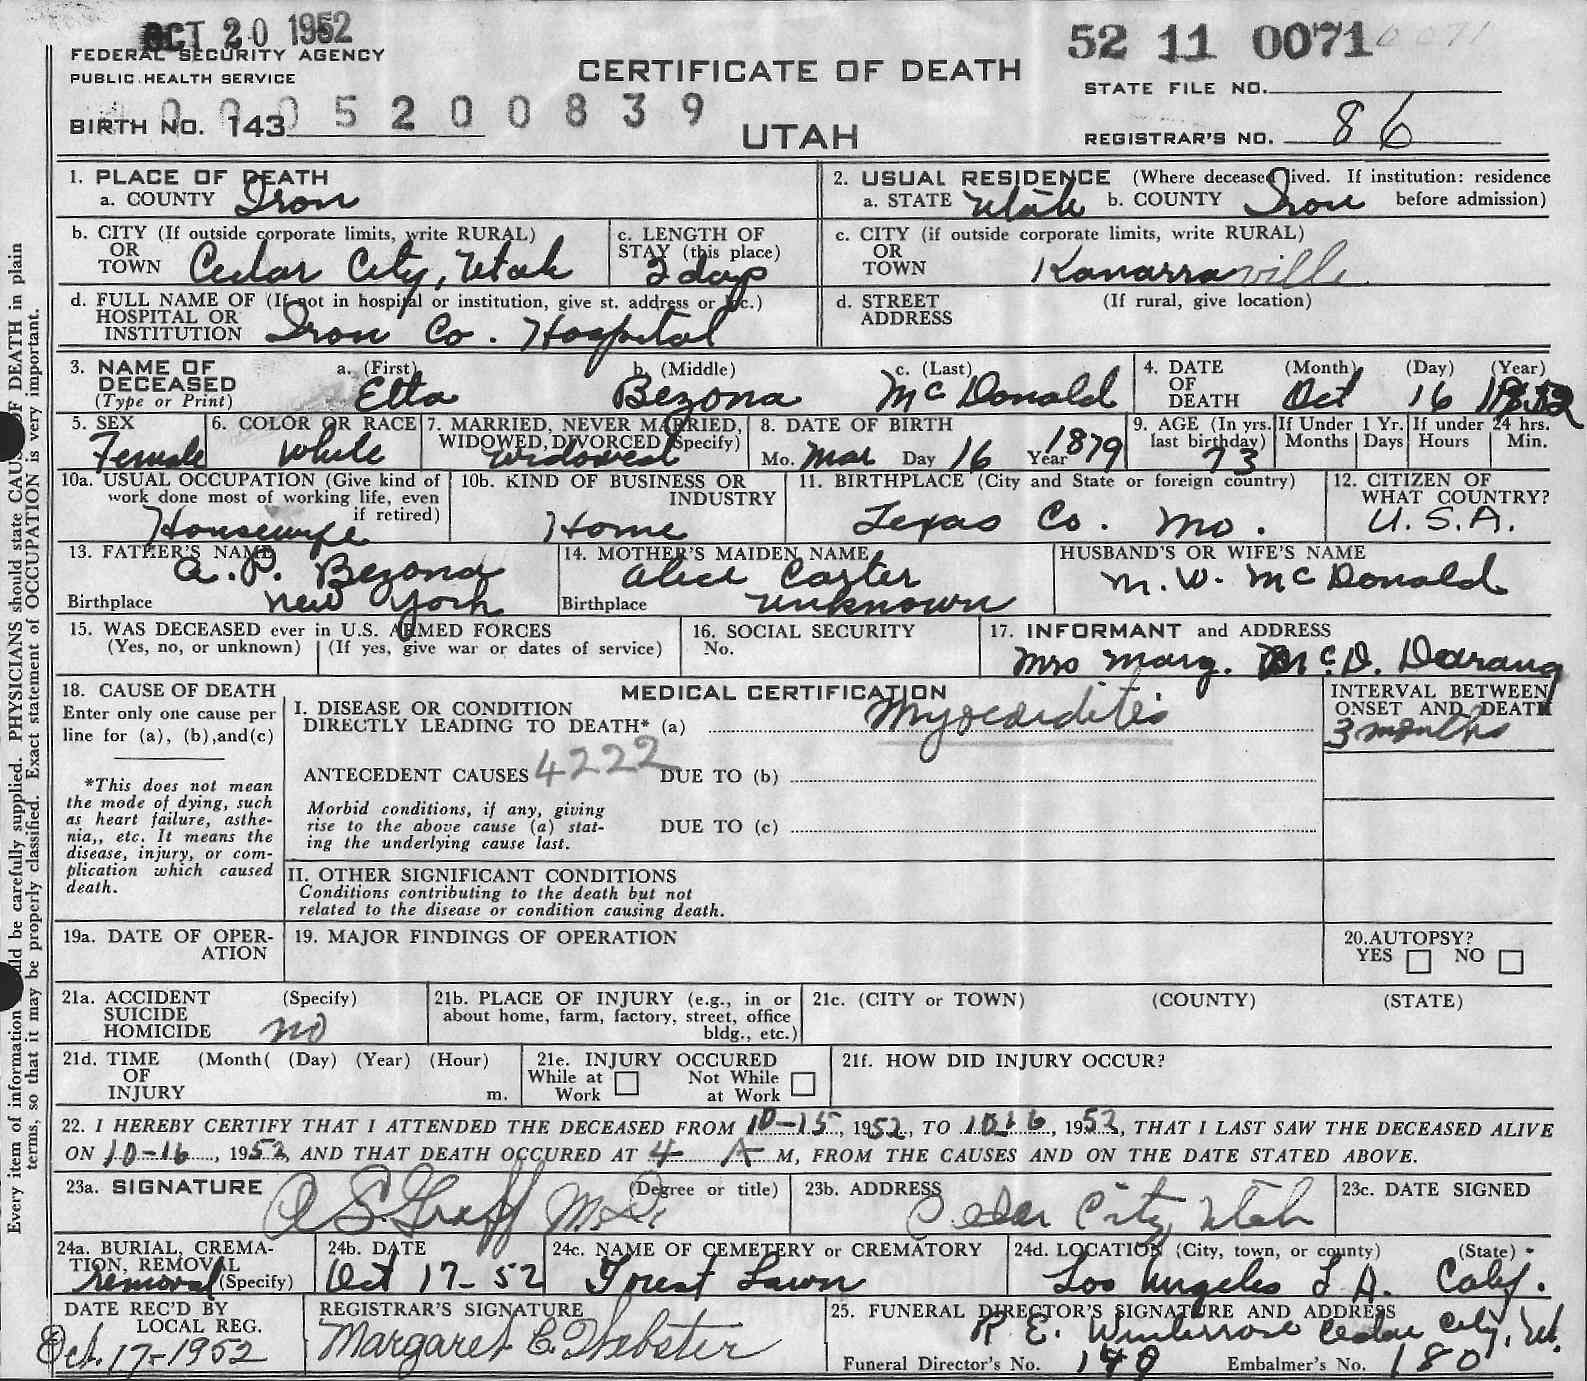 OCT 20 1952
52 11 0071
0071
FEDERAL SECURITY AGENCY
PUBLIC HEALTH SERVICE
CERTIFICATE OF DEATH
STATE FILE NO.
5200839
BIRTH NO. 143
UTAH
REGISTRAR'S NO. 86
1. PLACE OF DEATH
a. COUNTY Iron
2. USUAL RESIDENCE (Where deceased lived. If institution: residence
a. STATE Utah b. COUNTY Iron before admission)
b. CITY (If outside corporate limits, write RURAL)
OR
TOWN Cedar City, Utah
c. LENGTH OF
STAY (this place)
2 days
c. CITY (if outside corporate limits, write RURAL)
OR
TOWN Kanarraville
d. FULL NAME OF (If not in hospital or institution, give st. address or loc.)
HOSPITAL OR
INSTITUTION Iron Co. Hospital
d. STREET (If rural, give location)
ADDRESS
3. NAME OF
DECEASED
(Type or Print)
a. (First) b. (Middle) c. (Last)
Etta Bezona McDonald
4. DATE
OF
DEATH
(Month) (Day) (Year)
Oct 16 1952
5. SEX
Female
6. COLOR OR RACE
White
7. MARRIED, NEVER MARRIED,
WIDOWED, DIVORCED (Specify)
Widowed
8. DATE OF BIRTH
Mo. Mar Day 16 Year 1879
9. AGE (In yrs.
last birthday)
73
If Under 1 Yr.
Months Days
If under 24 hrs.
Hours Min.
10a. USUAL OCCUPATION (Give kind of
work done most of working life, even
if retired)
Housewife
10b. KIND OF BUSINESS OR
INDUSTRY
Home
11. BIRTHPLACE (City and State or foreign country)
Texas Co. Mo.
12. CITIZEN OF
WHAT COUNTRY?
U.S.A.
13. FATHER'S NAME
A. P. Bezona
Birthplace New York
14. MOTHER'S MAIDEN NAME
Alice Carter
Birthplace unknown
HUSBAND'S OR WIFE'S NAME
M. W. McDonald
15. WAS DECEASED ever in U.S. ARMED FORCES
(Yes, no, or unknown) (If yes, give war or dates of service)
16. SOCIAL SECURITY
No.
17. INFORMANT and ADDRESS
Mrs Marg. McD.
18. CAUSE OF DEATH
Enter only one cause per
line for (a), (b), and (c)
*This does not mean
the mode of dying, such
as heart failure, asthe-
nia,, etc. It means the
disease, injury, or com-
plication which caused
death.
MEDICAL CERTIFICATION
I. DISEASE OR CONDITION
DIRECTLY LEADING TO DEATH* (a) Myocarditis
INTERVAL BETWEEN
ONSET AND DEATH
3 months
ANTECEDENT CAUSES 4222 DUE TO (b)
Morbid conditions, if any, giving
rise to the above cause (a) stat-
ing the underlying cause last.
DUE TO (c)
II. OTHER SIGNIFICANT CONDITIONS
Conditions contributing to the death but not
related to the disease or condition causing death.
19a. DATE OF OPER-
ATION
19. MAJOR FINDINGS OF OPERATION
20. AUTOPSY?
YES NO
21a. ACCIDENT (Specify)
SUICIDE
HOMICIDE no
21b. PLACE OF INJURY (e.g., in or
about home, farm, factory, street, office
bldg., etc.)
21c. (CITY or TOWN) (COUNTY) (STATE)
21d. TIME (Month( (Day) (Year) (Hour)
OF
INJURY m.
21e. INJURY OCCURED
While at Not While
Work at Work
21f. HOW DID INJURY OCCUR?
22. I HEREBY CERTIFY THAT I ATTENDED THE DECEASED FROM 10-15, 1952, TO 10-16, 1952, THAT I LAST SAW THE DECEASED ALIVE
ON 10-16, 1952, AND THAT DEATH OCCURED AT 4 A M, FROM THE CAUSES AND ON THE DATE STATED ABOVE.
23a. SIGNATURE (Degree or title)
Graff M.D.
23b. ADDRESS
Cedar City Utah
23c. DATE SIGNED
24a. BURIAL, CREMA-
TION, REMOVAL
Removal (Specify)
24b. DATE
Oct 17-52
24c. NAME OF CEMETERY or CREMATORY
Forest Lawn
24d. LOCATION (City, town, or county) (State)
Los Angeles L A. Calif.
DATE REC'D BY
LOCAL REG.
Oct. 17-1952
REGISTRAR'S SIGNATURE
Margaret C. Webster
25. FUNERAL DIRECTOR'S SIGNATURE AND ADDRESS
R. E. Winterrose Cedar City, Ut.
Funeral Director's No. Embalmer's No. 180
Every item of information should be carefully supplied. PHYSICIANS should state CAUSE OF DEATH in plain
terms, so that it may be properly classified. Exact statement of OCCUPATION is very important.